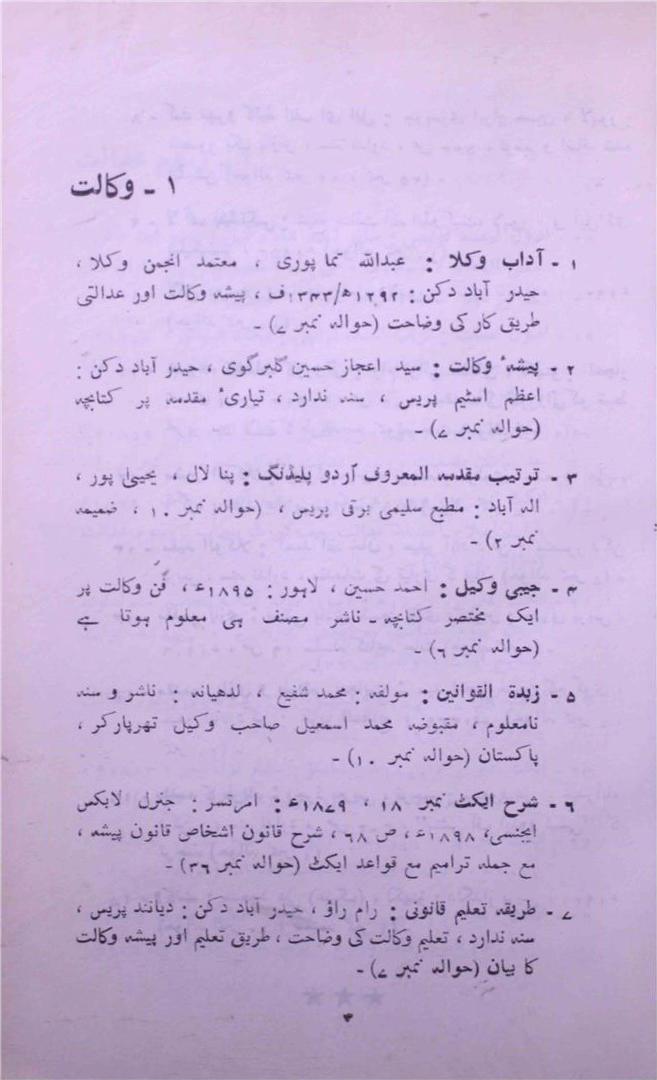 ۱ ۔ وکالت
۱ ۔ آداب وکلا : عبداللہ تماپوری ، معتمد انجمن وکلا ،
حیدر آباد دکن : ۱۲۹۲ھ/۱۳۴۳ف ، پیشہ وکالت اور عدالتی
طریق کار کی وضاحت (حوالہ نمبر ۷) ۔
۲ ۔ پیشۂ وکالت : سید اعجاز حسین گلبرگوی ، حیدر آباد دکن :
اعظم اسٹیم پریس ، سنہ ندارد ، تیاریٔ مقدمہ پر کتابچہ
(حوالہ نمبر ۷) ۔
۳ ۔ ترتیب مقدمہ المعروف اردو پلیڈنگ : پنا لال ، یحییٰ پور ،
الہ آباد : مطبع سلیمی برقی پریس ، (حوالہ نمبر ۱۰ ، ضمیمہ
نمبر ۲) ۔
۴ ۔ جیبی وکیل : احمد حسین ، لاہور : ۱۸۹۵ء ، فن وکالت پر
ایک مختصر کتابچہ ۔ ناشر مصنف ہی معلوم ہوتا ہے
(حوالہ نمبر ۶) ۔
۵ ۔ زبدۃ القوانین : مولفہ : محمد شفیع ، لدھیانہ : ناشر و سنہ
نامعلوم ، مقبوضہ محمد اسمعیل صاحب وکیل تھرپارکر ،
پاکستان (حوالہ نمبر ۱۰) ۔
۶ ۔ شرح ایکٹ نمبر ۱۸ ، ۱۸۷۹ء : امرتسر : جنرل لابکس
ایجنسی، ۱۸۹۸ء ، ص ۶۸ ، شرح قانون اشخاص قانون پیشہ ،
مع جملہ ترامیم مع قواعد ایکٹ (حوالہ نمبر ۳۶) ۔
۷ ۔ طریقہ تعلیم قانونی : رام راؤ ، حیدر آباد دکن : دیانند پریس ،
سنہ ندارد ، تعلیم وکالت کی وضاحت ، طریق تعلیم اور پیشہ وکالت
کا بیان (حوالہ نمبر ۷) ۔
۴